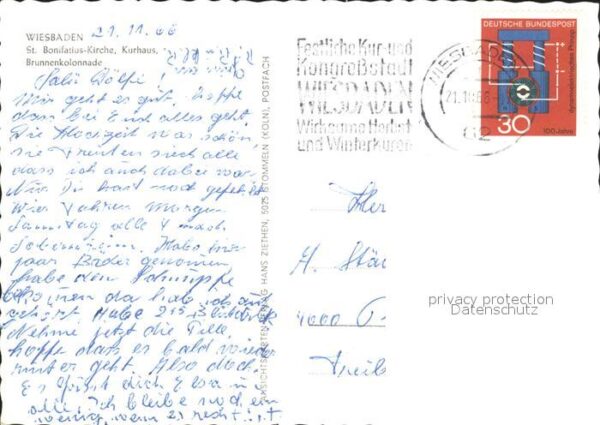 WIESBADEN
St. Bonifatius-Kirche, Kurhaus,
Brunnenkolonnade
21.11.66
Salü Wölfi!
Mir geht es gut, hoffe
dass bei Euch alles geht.
Die Hochzeit war schön
sie freuten sich alle
dass ich auch dabei war
Nur Du hast noch gefehlt
Wir fahren morgen
Samstag alle 4 nach
Habe mir
paar Bäder genommen
habe den Schnupfe
da hab ich auf
gehört. Habe 215 Blutdruck
Nehme jetzt die Pille,
hoffe dass es bald wieder
runter geht. Also doch
Es grüsst dich Elsa u
alle. Ich bleibe noch ein
wenig, wenn es recht ist
ANSICHTSKARTENVERLAG HANS ZIETHEN, 5025 STOMMELN (KÖLN), POSTFACH
Festliche Kur- und
Kongreßstadt
WIESBADEN
Wirksame Herbst-
und Winterkuren
WIESBADEN
21.10.66
DEUTSCHE BUNDESPOST
dynamoelektrisches Prinzip
100 Jahre
30
Her
H. Stär
4000
Dreib
privacy protection
Datenschutz